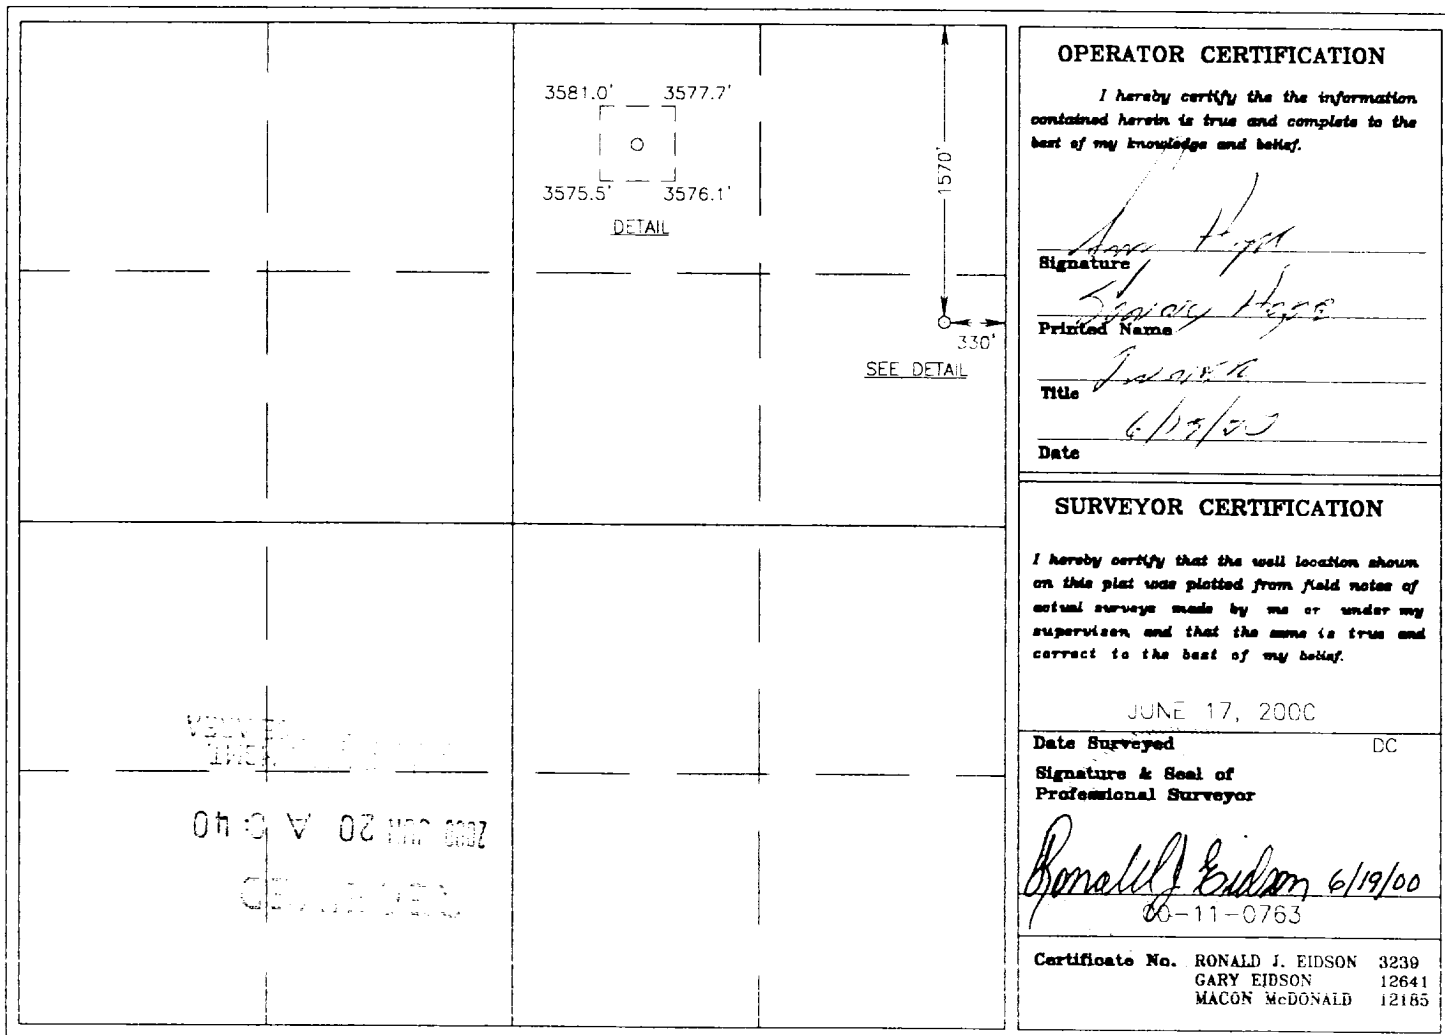 3581.0' 3577.7'
3575.5' 3576.1'
DETAIL
1570'
330'
SEE DETAIL
OPERATOR CERTIFICATION
I hereby certify the the information
contained herein is true and complete to the
best of my knowledge and belief.
Signature
Printed Name
Title
Date
SURVEYOR CERTIFICATION
I hereby certify that the well location shown
on this plat was plotted from field notes of
actual surveys made by me or under my
supervison, and that the same is true and
correct to the best of my belief.
JUNE 17, 2000
Date Surveyed DC
Signature & Seal of
Professional Surveyor
Ronald J Eidson 6/19/00
00-11-0763
Certificate No. RONALD J. EIDSON 3239
GARY EIDSON 12641
MACON McDONALD 12185
2000 JUN 20 A
RECEIVED